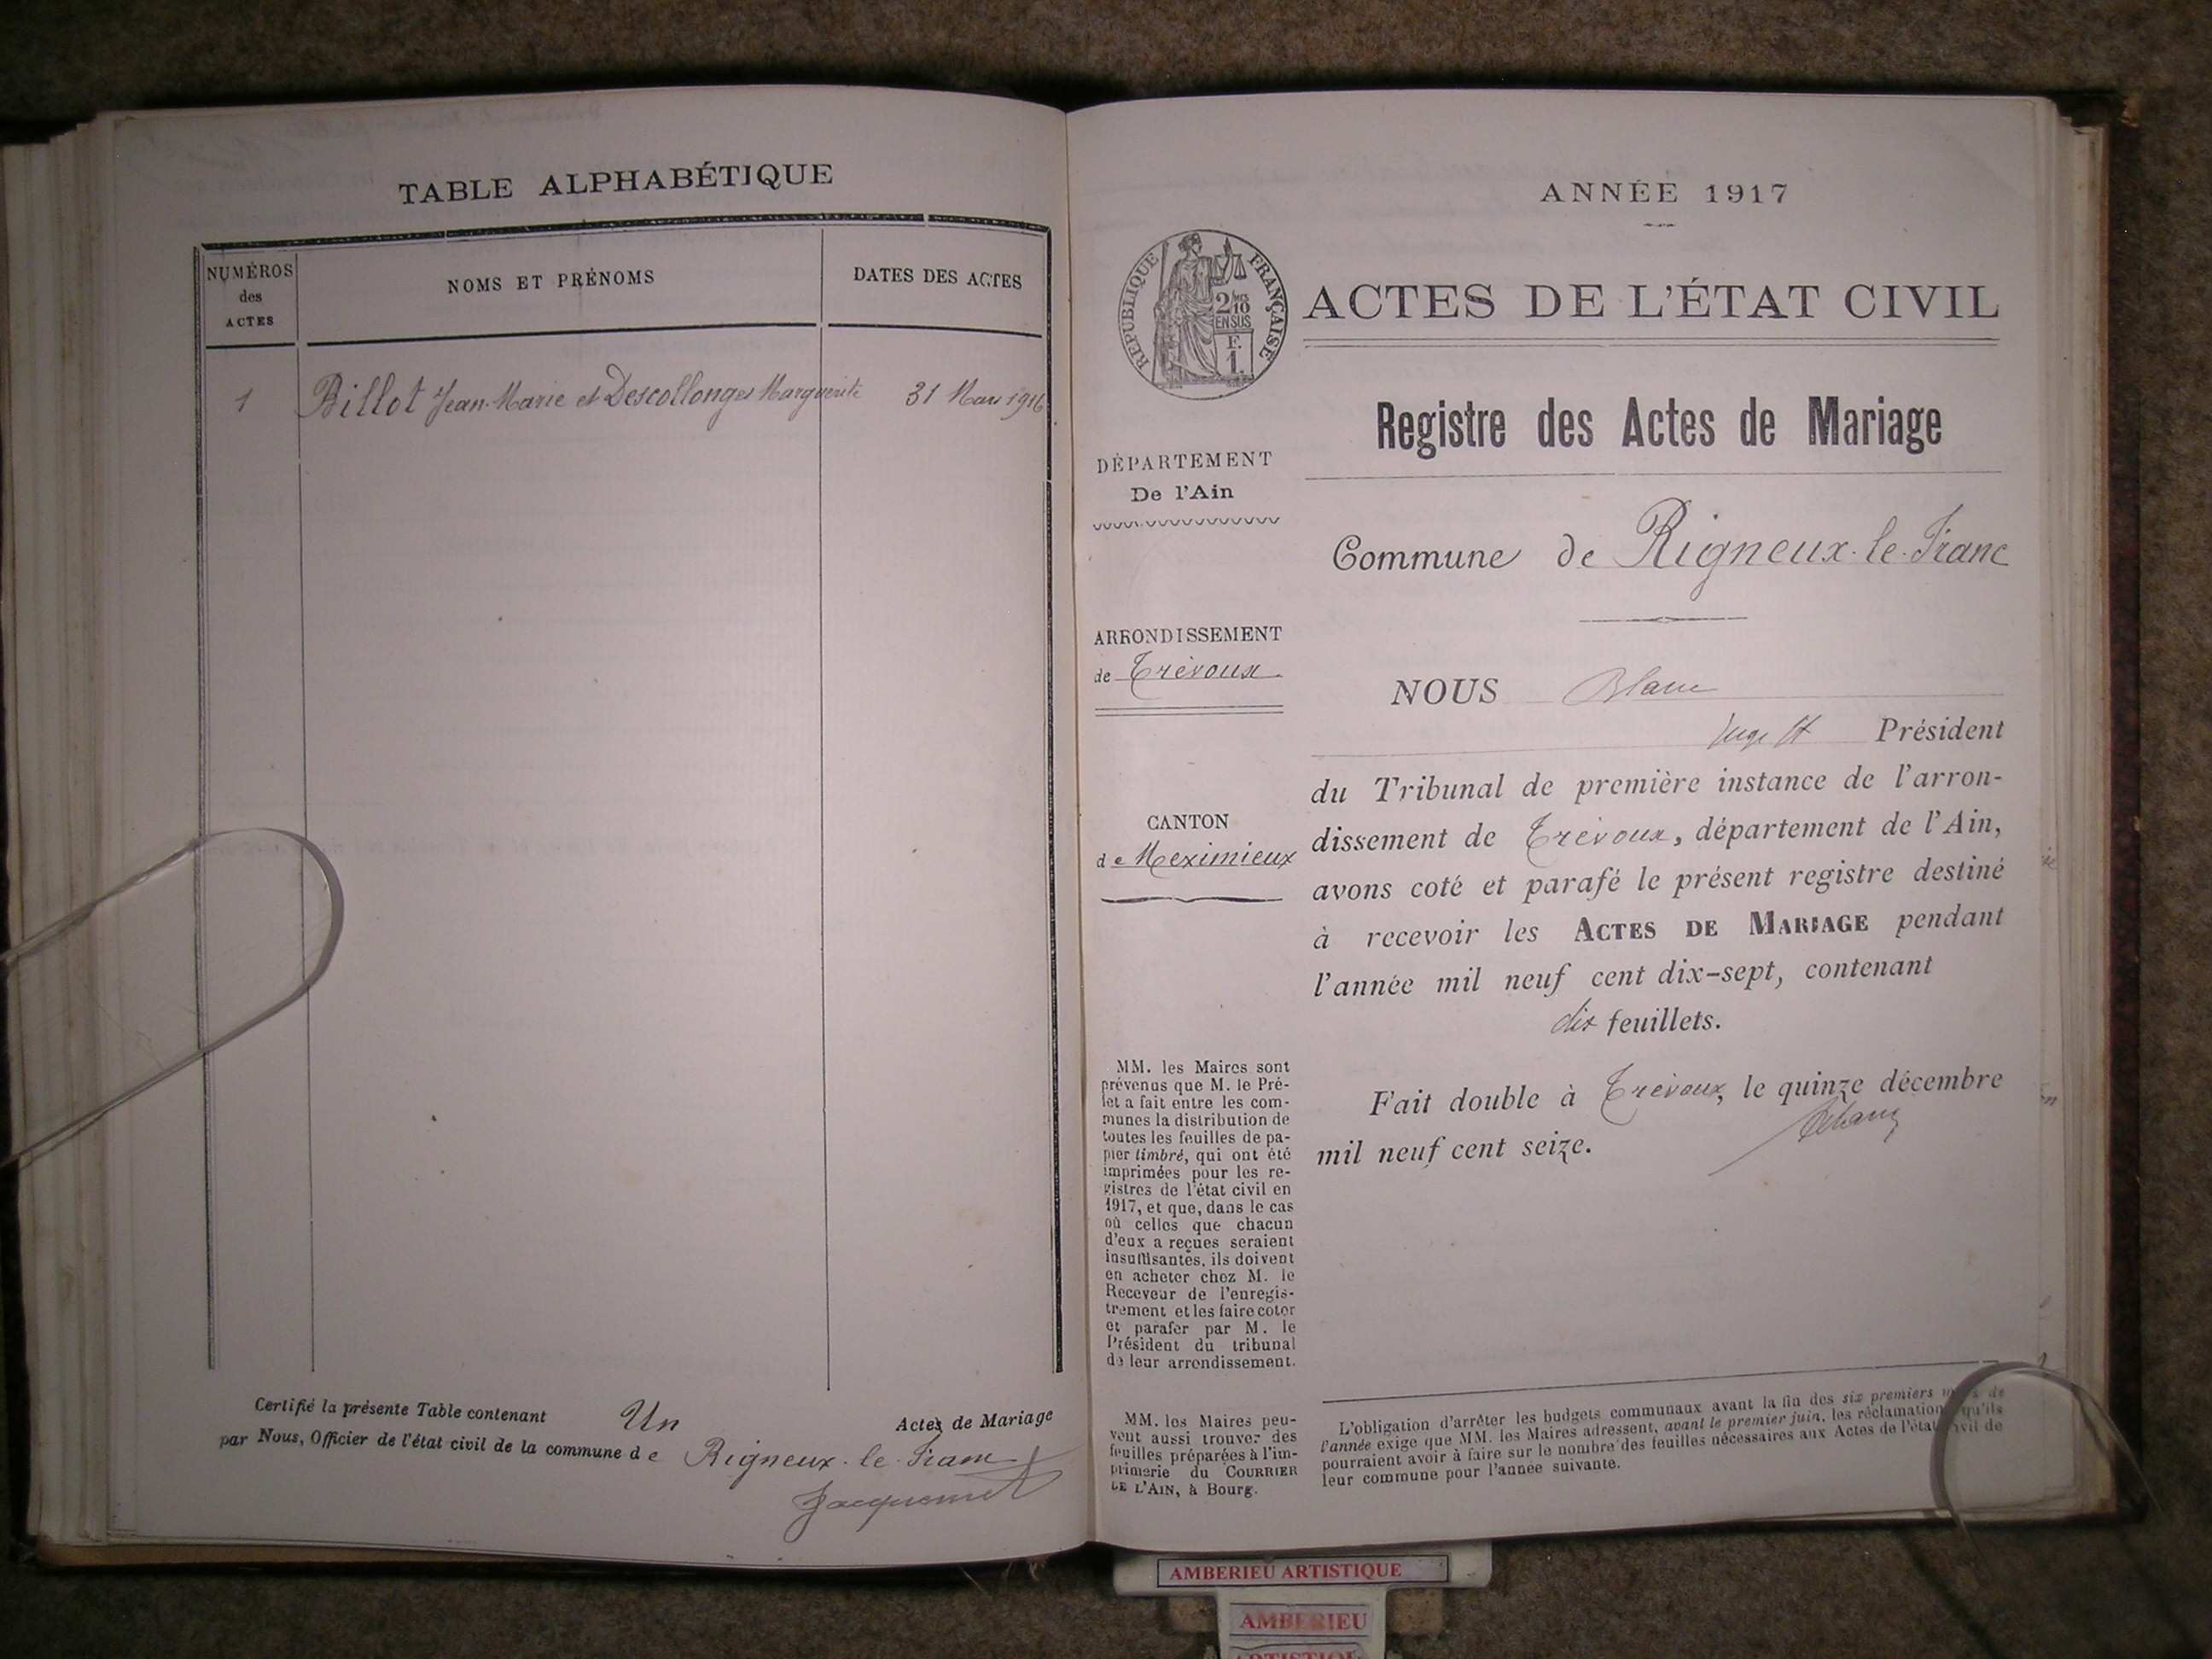 TABLE ALPHABÉTIQUE
NUMÉROS
des
ACTES
NOMS ET PRÉNOMS
DATES DES ACTES
1 Billot Jean-Marie et Descollonges Marguerite 31 Mars 1916
Certifié la présente Table contenant Un Actes de Mariage
par Nous, Officier de l'état civil de la commune de Rigneux-le-Franc
Jacquemet
ANNÉE 1917
RÉPUBLIQUE FRANÇAISE
2/10
EN SUS
F.
1.
ACTES DE L'ÉTAT CIVIL
Registre des Actes de Mariage
DÉPARTEMENT
De l'Ain
Commune de Rigneux-le-Franc
ARRONDISSEMENT
de Trévoux
CANTON
de Meximieux
NOUS Blanc
Juge Président
du Tribunal de première instance de l'arron-
dissement de Trévoux, département de l'Ain,
avons coté et parafé le présent registre destiné
à recevoir les ACTES DE MARIAGE pendant
l'année mil neuf cent dix-sept, contenant
dix feuillets.
Fait double à Trévoux, le quinze décembre
mil neuf cent seize.
Blanc
MM. les Maires sont
prévenus que M. le Pré-
fet a fait entre les com-
munes la distribution de
toutes les feuilles de pa-
pier timbré, qui ont été
imprimées pour les re-
gistres de l'état civil en
1917, et que, dans le cas
où celles que chacun
d'eux a reçues seraient
insuffisantes, ils doivent
en acheter chez M. le
Receveur de l'enregis-
trement et les faire coter
et parafer par M. le
Président du tribunal
de leur arrondissement.
MM. les Maires peu-
vent aussi trouver des
feuilles préparées à l'im-
primerie du COURRIER
DE L'AIN, à Bourg.
L'obligation d'arrêter les budgets communaux avant la fin des six premiers mois de
l'année exige que MM. les Maires adressent, avant le premier juin, les réclamations qu'ils
pourraient avoir à faire sur le nombre des feuilles nécessaires aux Actes de l'état civil de
leur commune pour l'année suivante.
AMBERIEU ARTISTIQUE
AMBERIEU
ARTISTIQUE